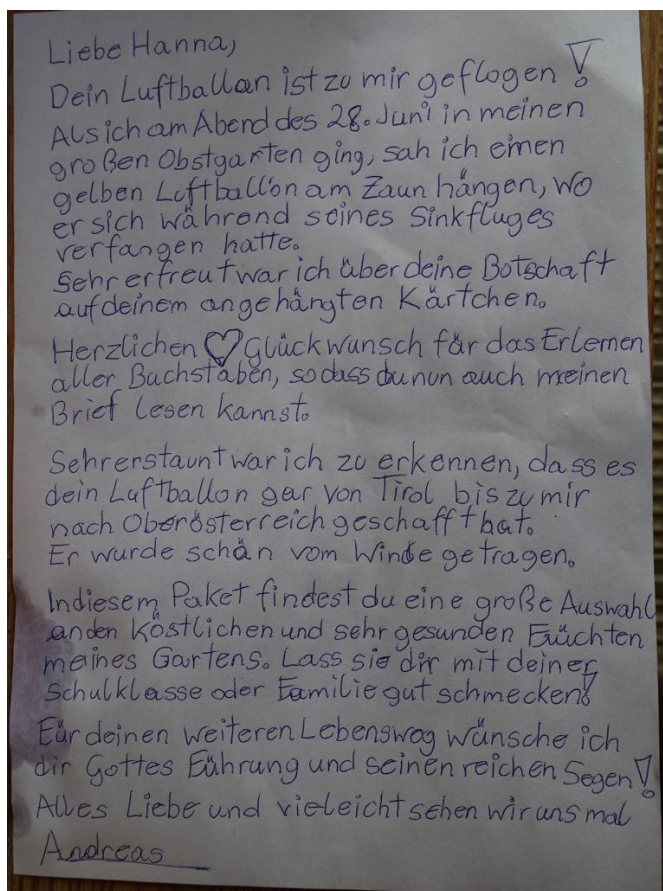 Liebe Hanna,
Dein Luftballon ist zu mir geflogen!
Als ich am Abend des 28. Juni in meinen
großen Obstgarten ging, sah ich einen
gelben Luftballon am Zaun hängen, wo
er sich während seines Sinkfluges
verfangen hatte.
Sehr erfreut war ich über deine Botschaft
auf deinem angehängten Kärtchen.
Herzlichen ♡ Glückwunsch für das Erlernen
aller Buchstaben, sodass du nun auch meinen
Brief lesen kannst.
Sehr erstaunt war ich zu erkennen, dass es
dein Luftballon gar von Tirol bis zu mir
nach Oberösterreich geschafft hat.
Er wurde schön vom Winde getragen.
In diesem Paket findest du eine große Auswahl
an den köstlichen und sehr gesunden Früchten
meines Gartens. Lass sie dir mit deiner
Schulklasse oder Familie gut schmecken!
Für deinen weiteren Lebensweg wünsche ich
dir Gottes Führung und seinen reichen Segen!
Alles Liebe und vieleicht sehen wir uns mal
Andreas